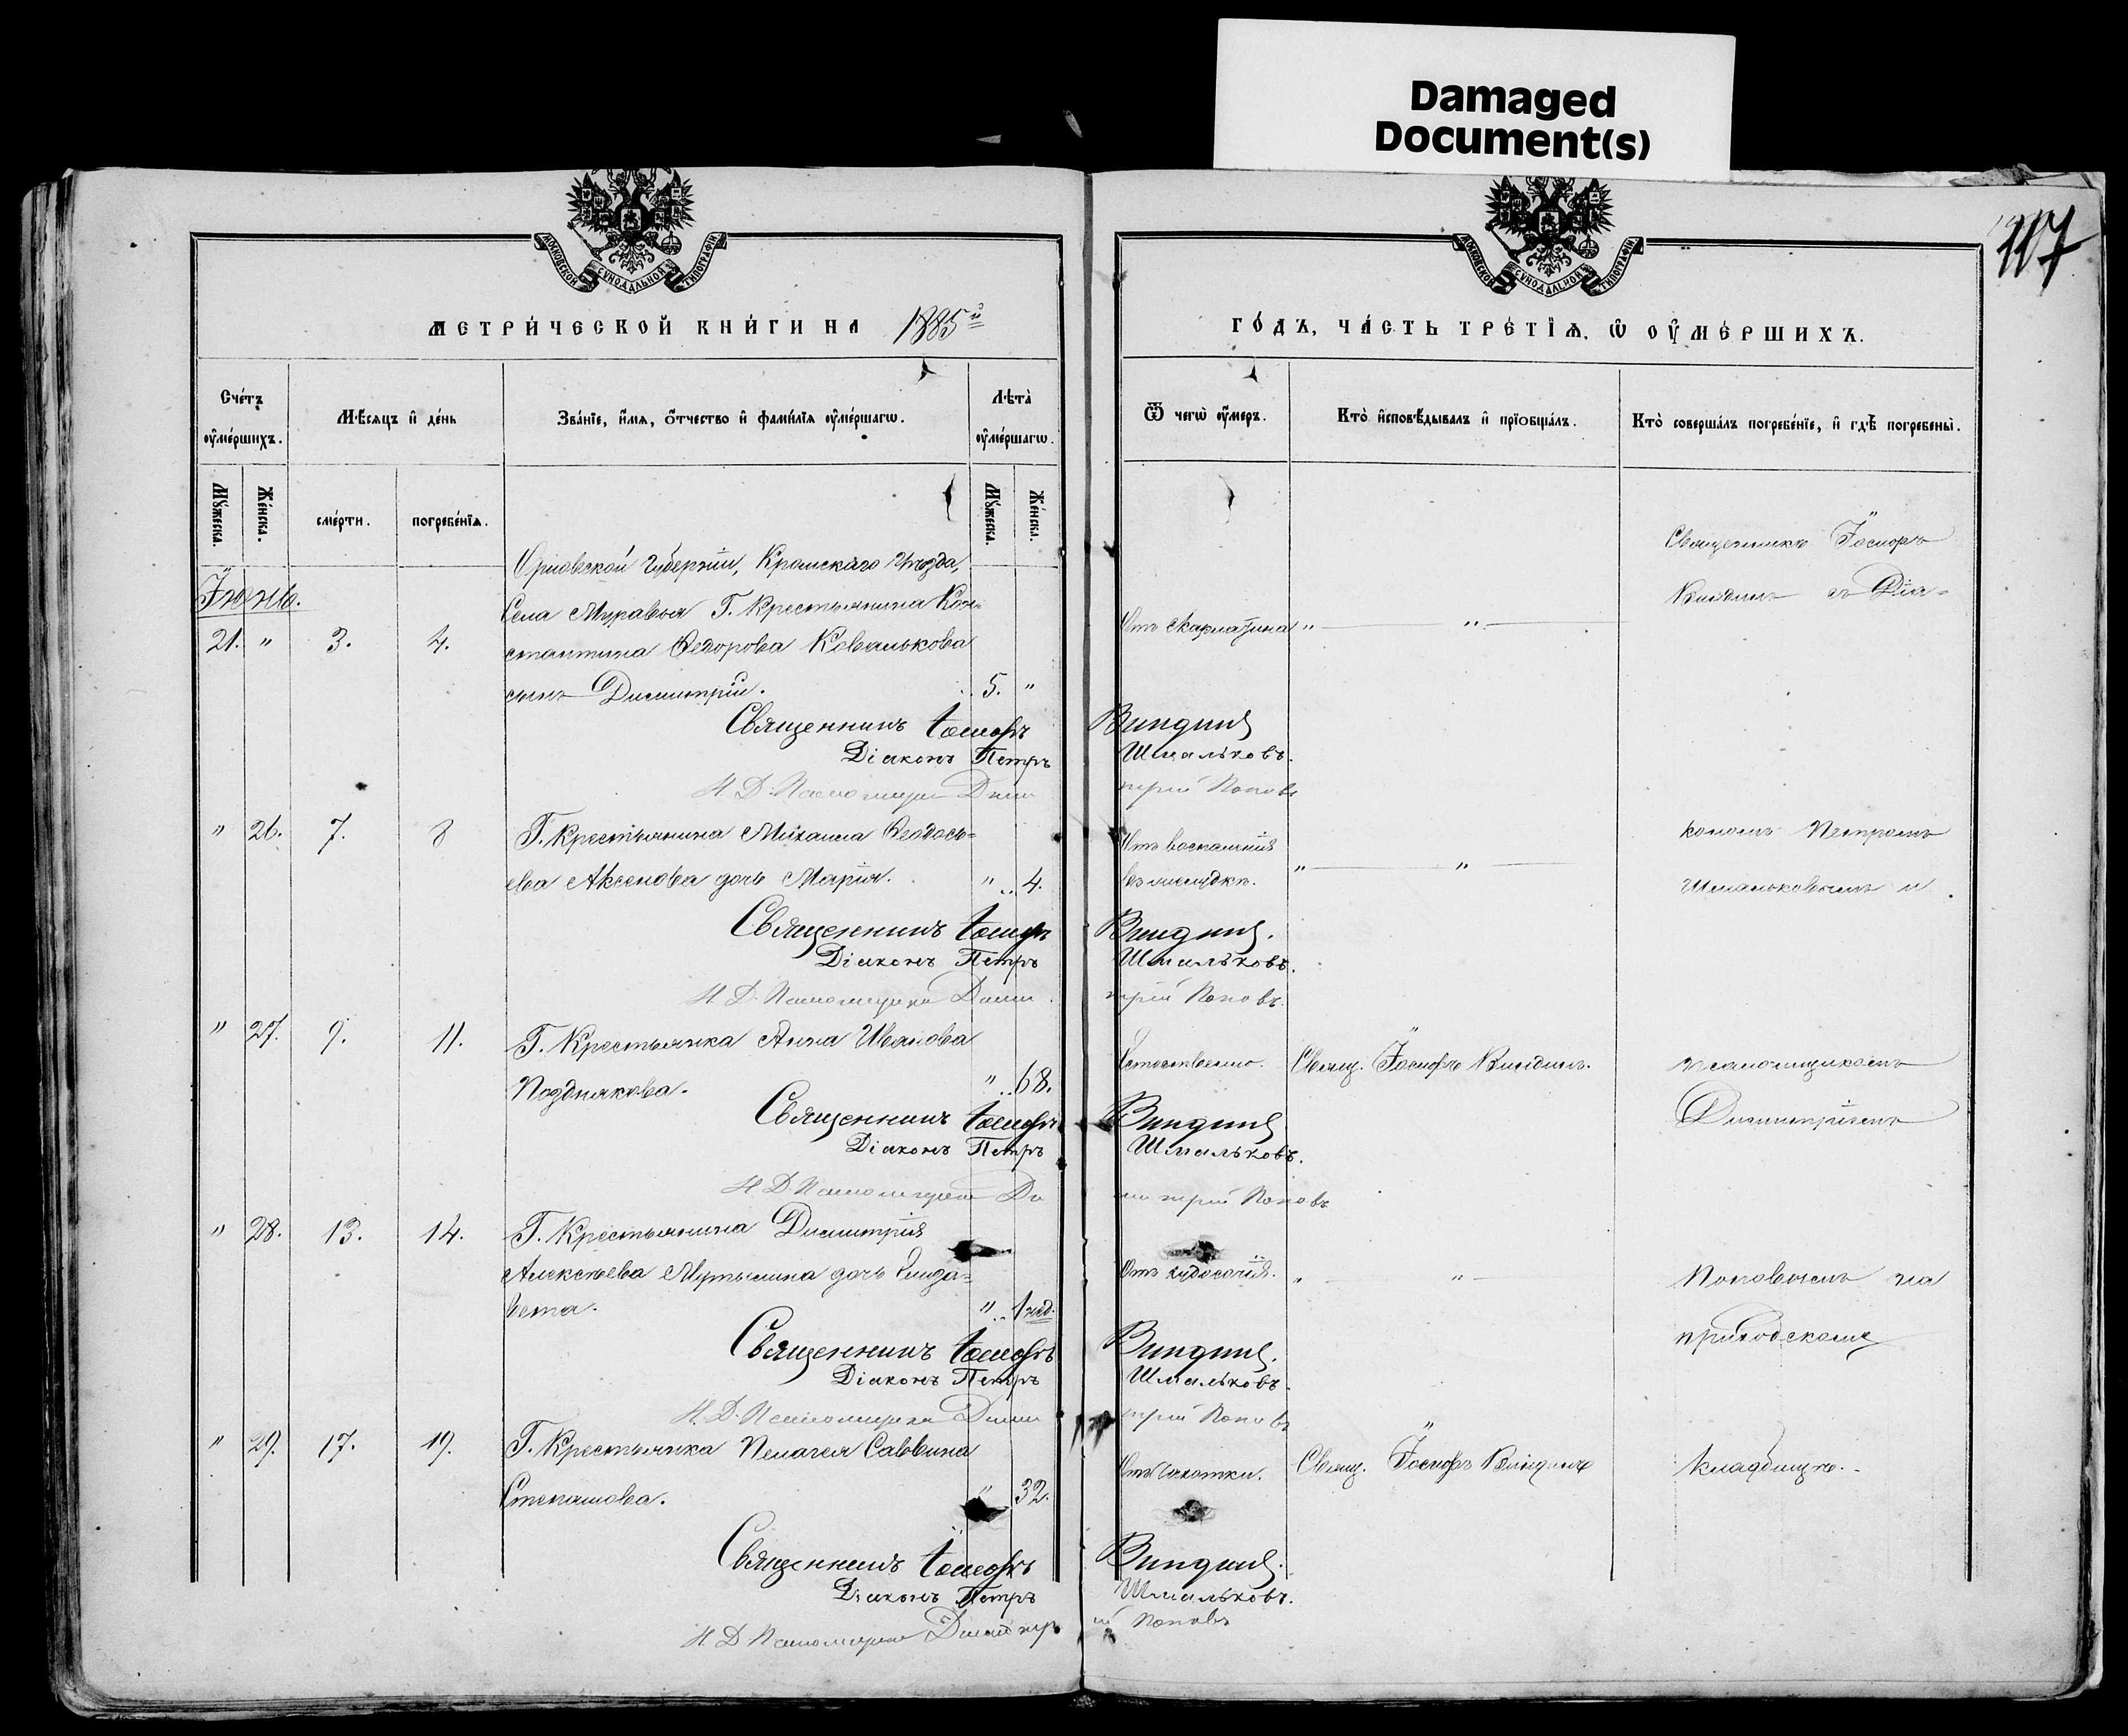 Damaged
Document(s)
117
МОСКОВСКОЙ СѴНОДАЛЬНОЙ ТИПОГРАФІИ
МОСКОВСКОЙ СѴНОДАЛЬНОЙ ТИПОГРАФІИ
МЕТРИ́ЧЕСКОЙ КНИ́ГИ НА 1885й
ГО́ДЪ, ЧА́СТЬ ТРЕ́ТІѦ, Ѡ ОУМЕ́РШИХЪ.
Сче́тъ оуме́ршихъ.
Мѣ́сяцъ и де́нь
Зва́нїе, и́мя, о́тчество и фами́лїя оуме́ршагѡ.
Лѣта̀ оуме́ршагѡ.
Ѿ чегѡ̀ оу́меръ.
Кто̀ и҆сповѣ́дывалъ и прїобща́лъ.
Кто̀ соверша́лъ погребе́нїе, и гдѣ̀ погребены̀.
Му́жеска.
Же́нска.
сме́рти.
погребе́нїя.
Му́жеска.
Же́нска.
Орловской губерніи, Кромскаго уѣзда,
Іюнь.
Села Муравля Г. Крестьянина Кон-
21. " 3. 4. стантина Ѳедорова Ковалькова
сынъ Димитрій. 5. "
Отъ " "
Священникъ Іосифъ
Виндинъ съ Діа-
Священникъ Іосифъ Виндинъ
Діаконъ Петръ Шмальковъ.
И. Д. Псаломщика Димитрій Поповъ
" 26. 7. 8 Г. Крестьянина Михаила Ѳеодось-
ева Аксенова дочь Марія. " 4.
Отъ воспаленія
въ желудкѣ. " "
кономъ Петромъ
Шмальковымъ и
Священникъ Іосифъ Виндинъ.
Діаконъ Петръ Шмальковъ.
И. Д. Псаломщика Димитрій Поповъ.
" 27. 9. 11. Г. Крестьянка Анна Иванова
Позднякова. " 68.
Естественно. Свящ. Іосифъ Виндинъ.
псаломщикомъ
Димитріемъ
Священникъ Іосифъ Виндинъ
Діаконъ Петръ Шмальковъ.
И. Д. Псаломщика Димитрій Поповъ
" 28. 13. 14. Г. Крестьянина Димитрія
Алексѣева дочь Елиза-
вета. " 1 нед.
Отъ худосочія. " "
Поповымъ на
приходскомъ
Священникъ Іосифъ Виндинъ.
Діаконъ Петръ Шмальковъ.
И. Д. Псаломщика Димитрій Поповъ
" 29. 17. 19. Г. Крестьянка Пелагея Саввина
Степашова. " 32.
Отъ чахотки. Свящ. Іосифъ Виндинъ
кладбищѣ.
Священникъ Іосифъ Виндинъ.
Діаконъ Петръ Шмальковъ.
И. Д. Псаломщика Димитрій Поповъ